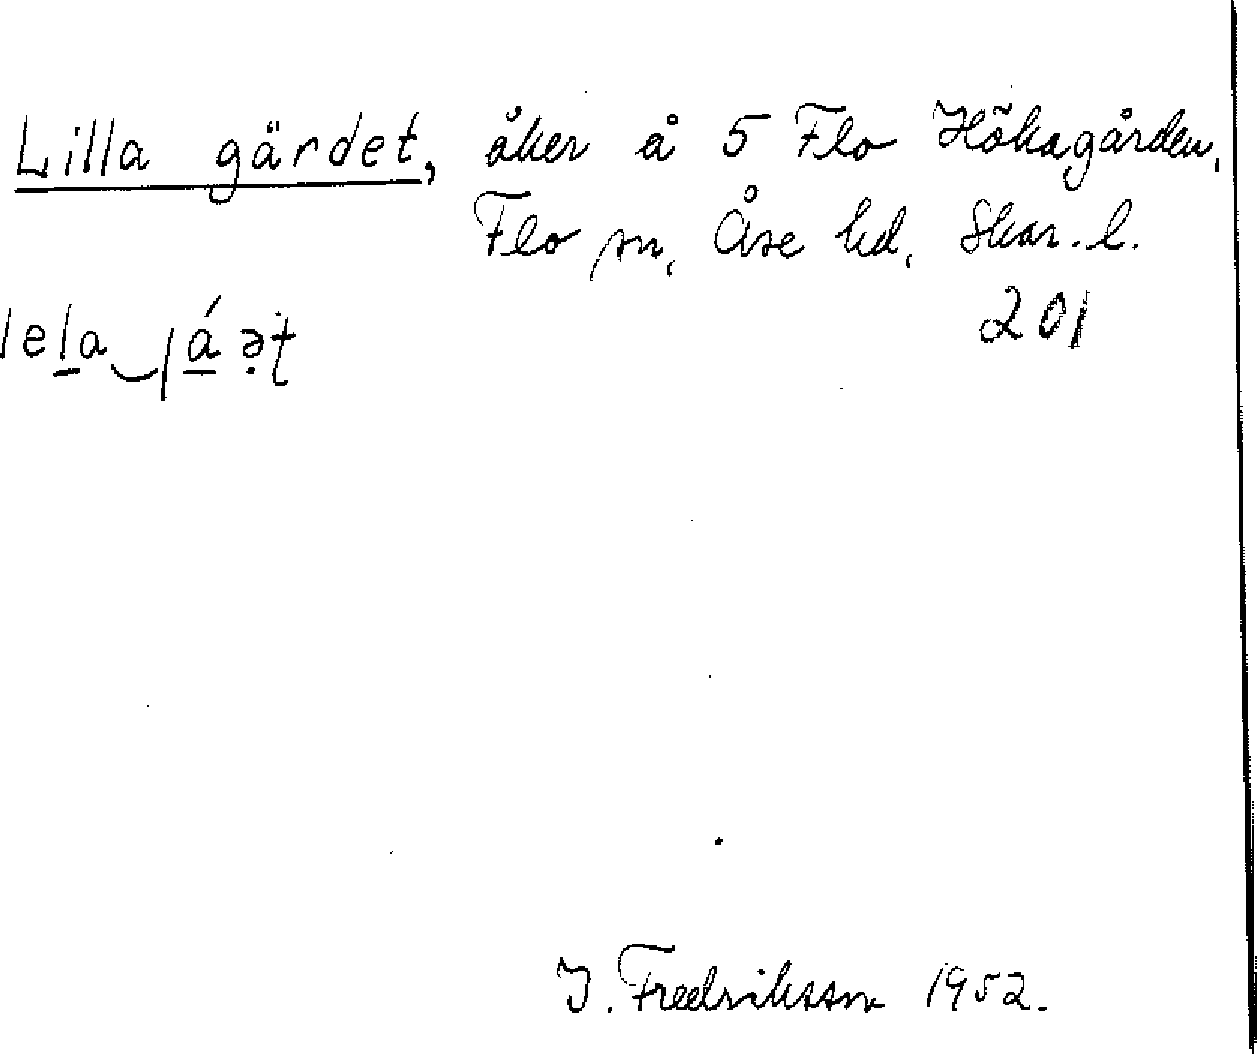 Lilla gärdet, åker å 5 Flo Hökagården,
Flo sn, Åse hd, Skar. l.
201
I. Fredriksson 1952.